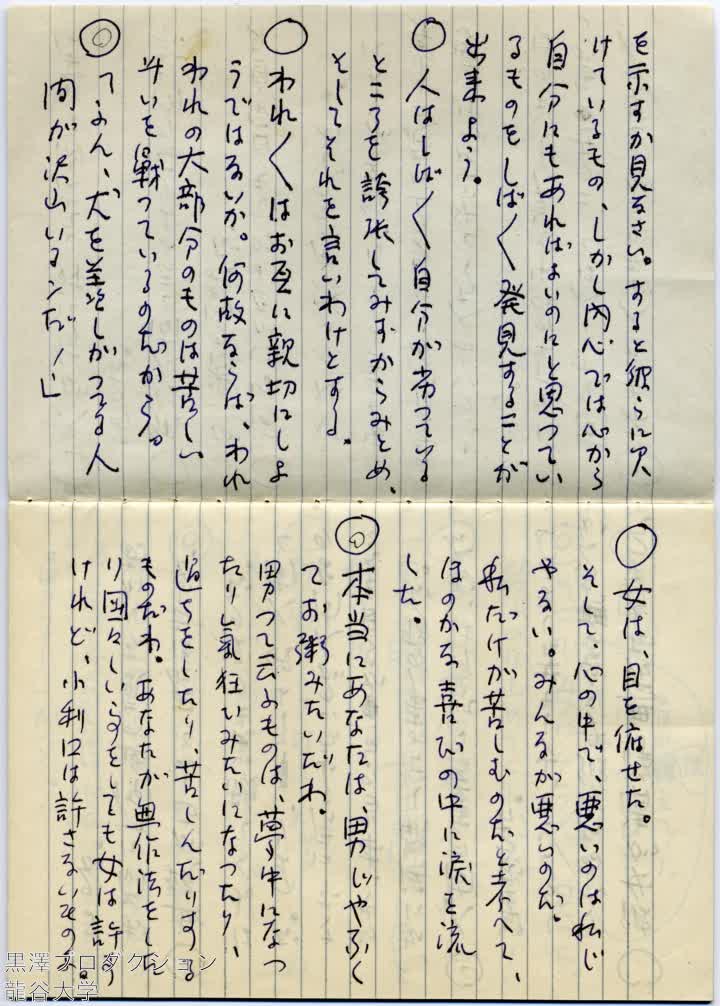 を示すか見なさい。すると彼らに欠
けているもの、しかし内心では心から
自分にもあればよいのにと思つてい
るものをしば〱発見することが
出来よう。
○ 人はしば〱自分が劣つている
ところを誇張してみずからみとめ、
そしてそれを言いわけとする。
○ われ〱はお互に親切にしよ
うではないか。何故ならば、われ
われの大部分のものは苦しい
斗いを戦つているのだから。
○ てえん、犬を差しがつてる人
間が沢山いるンだ!」
○ 女は、目を俯せた。
そして、心の中で、悪いのは私じ
やない。みんなが悪いのだ。
私だけが苦しむのだと考へて、
ほのかな喜びの中に涙を流
した。
○ 本当にあなたは、男じやなく
てお粥みたいだわ。
男つて云ふものは、夢中になつ
たり氣狂ひみたいになつたり、
過ちをしたり、苦しんだりする
ものだわ。あなたが無作法をした
り図々しい事をしても女は許す
けれど、小利口は許さないものよ。
黒澤プロダクション
龍谷大学